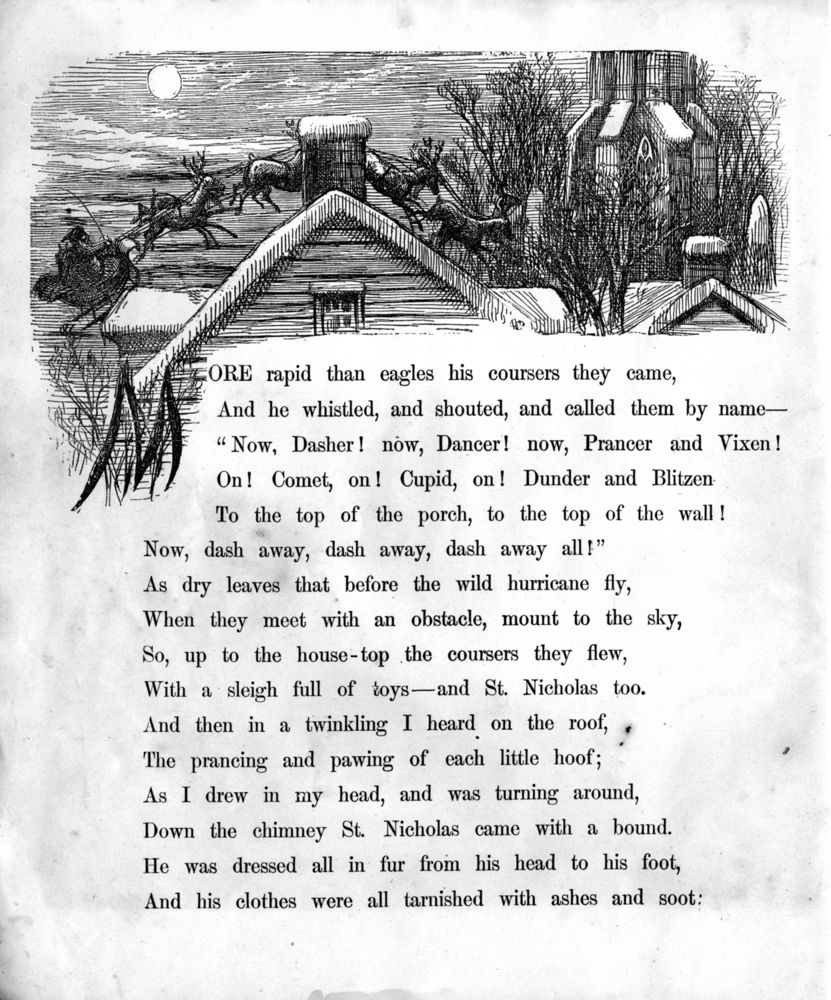 MORE rapid than eagles his coursers they came,
And he whistled, and shouted, and called them by name—
"Now, Dasher! now, Dancer! now, Prancer and Vixen!
On! Comet, on! Cupid, on! Dunder and Blitzen
To the top of the porch, to the top of the wall!
Now, dash away, dash away, dash away all!"
As dry leaves that before the wild hurricane fly,
When they meet with an obstacle, mount to the sky,
So, up to the house-top the coursers they flew,
With a sleigh full of toys—and St. Nicholas too.
And then in a twinkling I heard on the roof,
The prancing and pawing of each little hoof;
As I drew in my head, and was turning around,
Down the chimney St. Nicholas came with a bound.
He was dressed all in fur from his head to his foot,
And his clothes were all tarnished with ashes and soot: